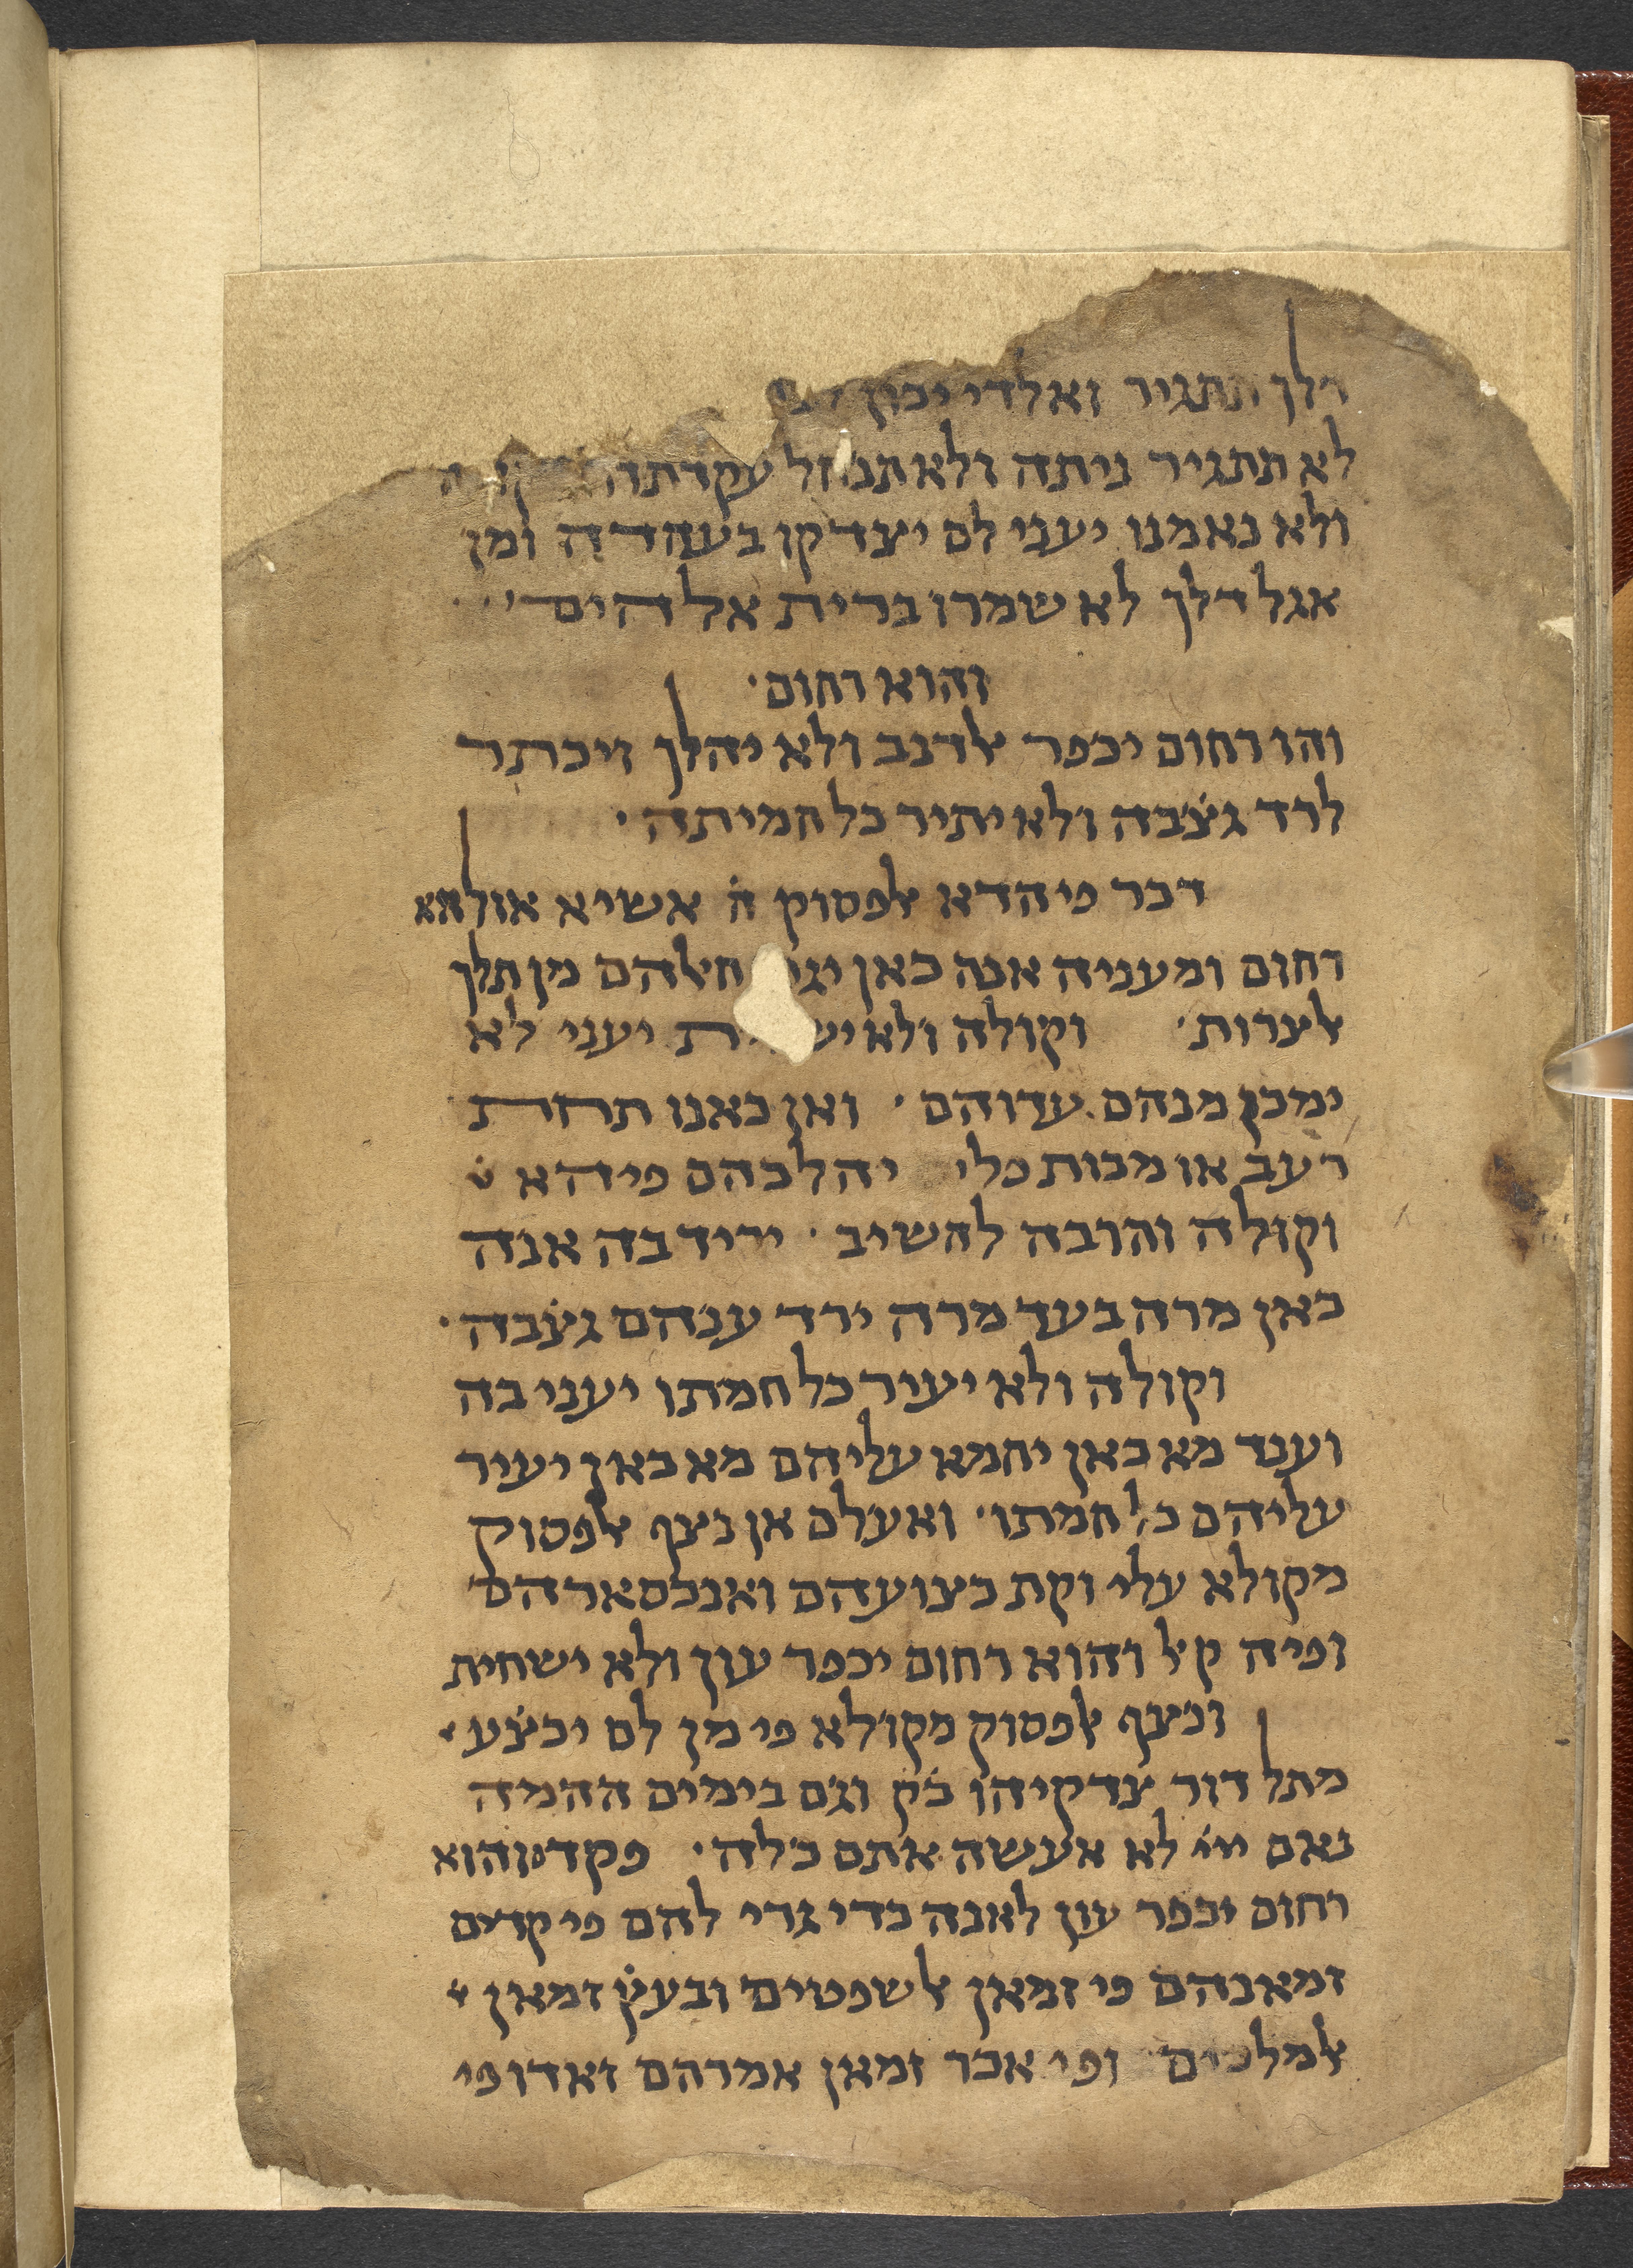 דלך תתגיר ואלדי יכון
לא תתגיר ניתה ולא תנחל עקדתה
ולא נאמנו יעני לם יצדקו בעהדה ומן
אגל דלך לא שמרו ברית אלהים
והוא רחום
והו רחום יכפר אלדנב ולא יהלך ויכתר
לרד גצ̇בה ולא יתיר כל חמיתה
דכר פי הדא אלפסוק ה̇ אשיא אולהא
רחום ומעניה אנה כאן חאלהם מן תלך
אלערות וקולה ולא יעני לא
ימכן מנהם עדוהם ואן כאנו תחת
רעב או מכות פלי יהלכהם פיהא
וקולה והרבה להשיב יריד בה אנה
כאן מרה בעד מרה ירד ענהם גצ̇בה
וקולה ולא יעיר כל חמתו יעני בה
וענד מא כאן יחמא עליהם מא כאן יעיר
עליהם כל חמתו ואעלם אן נצף אלפסוק
מקולא עלי וקת כצועהם ואנכסארהם
ופיה קאל והוא רחום יכפר עון ולא ישחית
ונצף אלפסוק מקולא פי מן לם יכצ̇ע
מתל דור צדקיהו כ̇ק וגם בימים ההמה
נאם ייי לא אעשה אתם כלה פקד והוא
רחום יכפר עון לאנה כדי גרי להם פי קדים
זמאנהם פי זמאן אלשפטים ובעץ̇ זמאן
אלמלכים ופי אכר זמאן אמרהם זאדו פי